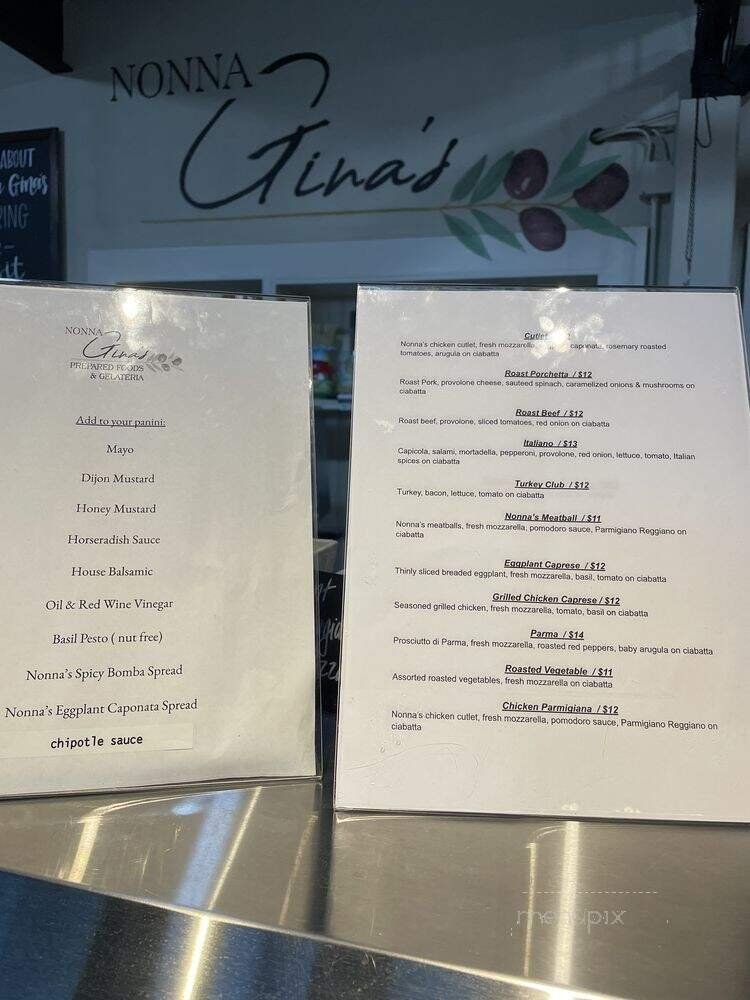 NONNA
Gina's
ABOUT
Gina's
NONNA
Gina's
PREPARED FOODS
& GELATERIA
Add to your panini:
Mayo
Dijon Mustard
Honey Mustard
Horseradish Sauce
House Balsamic
Oil & Red Wine Vinegar
Basil Pesto ( nut free)
Nonna's Spicy Bomba Spread
Nonna's Eggplant Caponata Spread
chipotle sauce
Cutlet
Nonna's chicken cutlet, fresh mozzarella, caponata, rosemary roasted
tomatoes, arugula on ciabatta
Roast Porchetta / $12
Roast Pork, provolone cheese, sauteed spinach, caramelized onions & mushrooms on
ciabatta
Roast Beef / $12
Roast beef, provolone, sliced tomatoes, red onion on ciabatta
Italiano / $13
Capicola, salami, mortadella, pepperoni, provolone, red onion, lettuce, tomato, Italian
spices on ciabatta
Turkey Club / $12
Turkey, bacon, lettuce, tomato on ciabatta
Nonna's Meatball / $11
Nonna's meatballs, fresh mozzarella, pomodoro sauce, Parmigiano Reggiano on
ciabatta
Eggplant Caprese / $12
Thinly sliced breaded eggplant, fresh mozzarella, basil, tomato on ciabatta
Grilled Chicken Caprese / $12
Seasoned grilled chicken, fresh mozzarella, tomato, basil on ciabatta
Parma / $14
Prosciutto di Parma, fresh mozzarella, roasted red peppers, baby arugula on ciabatta
Roasted Vegetable / $11
Assorted roasted vegetables, fresh mozzarella on ciabatta
Chicken Parmigiana / $12
Nonna's chicken cutlet, fresh mozzarella, pomodoro sauce, Parmigiano Reggiano on
ciabatta
menupix